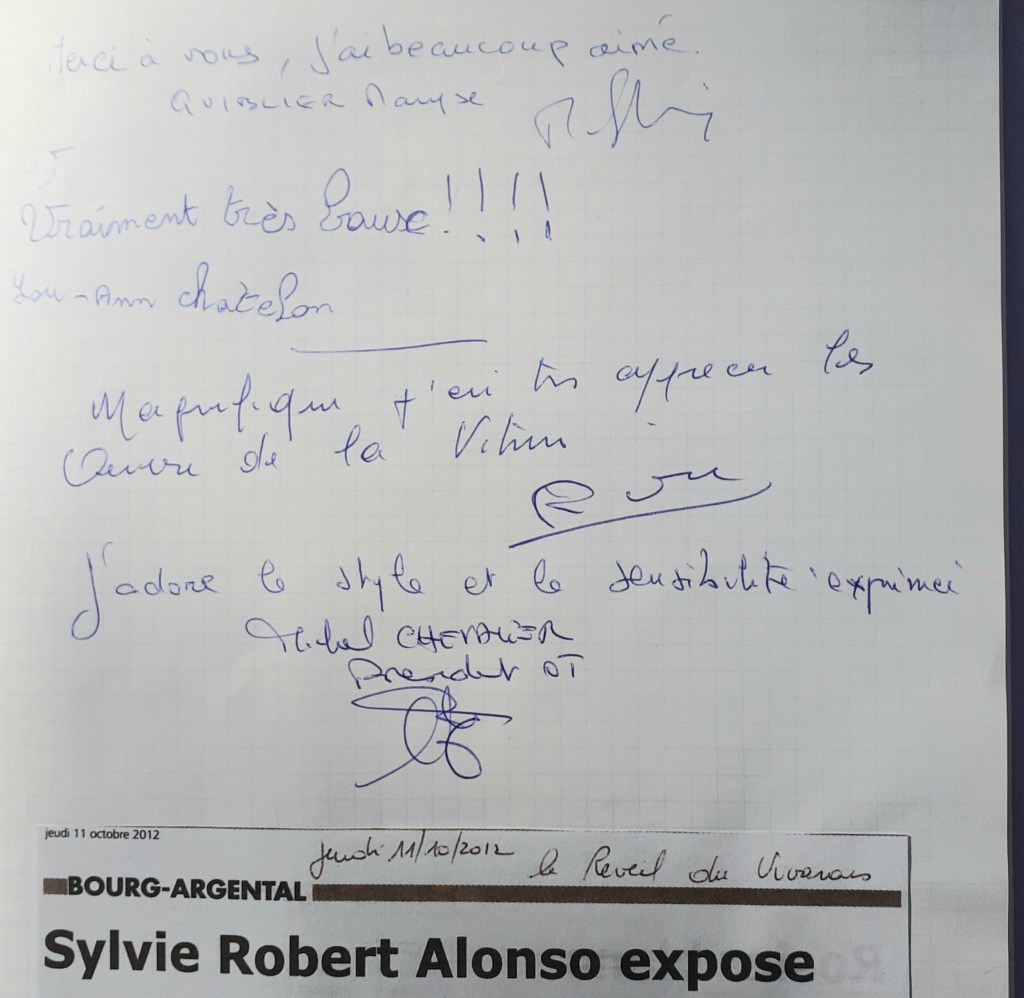 Merci à vous, j'ai beaucoup aimé.
QUIBLIER Maryse
Vraiment très beaux!!!!
Lou-Ann Chatelon
Magnifique j'ai tres apprecier les
Œuvre de la
J'adore le style et la sensibilité exprimée
Michel CHEVALIER
President OT
jeudi 11 octobre 2012
jeudi 11/10/2012 le Reveil du Vivarais
BOURG-ARGENTAL
Sylvie Robert Alonso expose